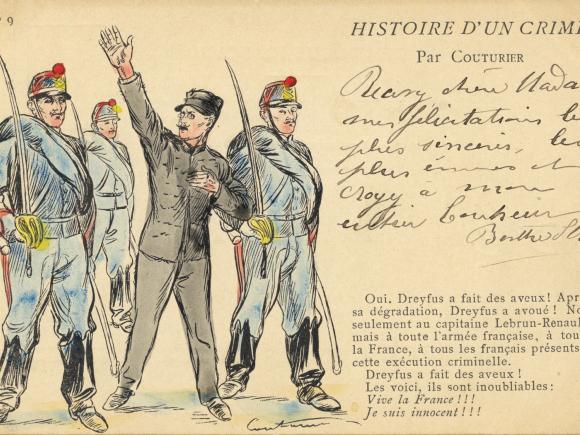 º 9
HISTOIRE D'UN CRIME
Par COUTURIER
Recevez chère Mada
mes félicitations les
plus sincères, les
plus émues et
croyez à mon
entier bonheur
Berthe
Oui, Dreyfus a fait des aveux! Apr
sa dégradation, Dreyfus a avoué! No
seulement au capitaine Lebrun-Renaul
mais à toute l'armée française, à tou
la France, à tous les français présents
cette exécution criminelle.
Dreyfus a fait des aveux!
Les voici, ils sont inoubliables:
Vive la France!!!
Je suis innocent!!!
Couturier